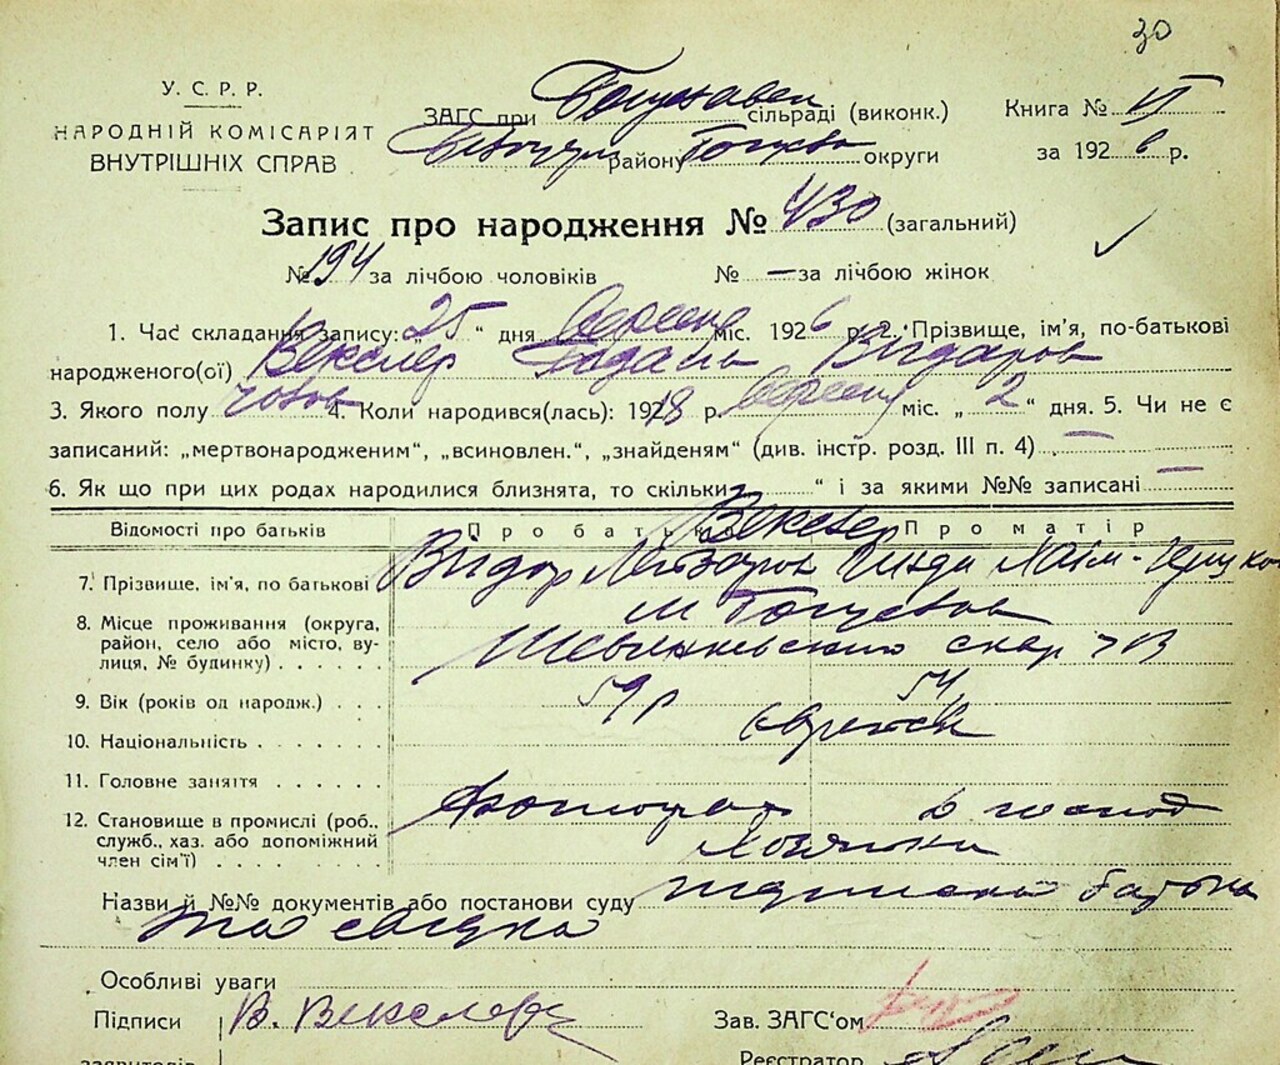 30
У. С. Р. Р.
НАРОДНІЙ КОМІСАРІЯТ
ВНУТРІШНІХ СПРАВ
ЗАГС при Богуславск сільраді (виконк.)
району округи
Книга № VI
за 1926 р.
Запис про народження № 430 (загальний)
№ 194 за лічбою чоловіків № — за лічбою жінок
1. Час складання запису: „25" дня вересня міс. 1926 р. 2. Прізвище, ім'я, по-батькові
народженого(ої) Векслер Видоров
3. Якого полу чолов 4. Коли народився(лась): 1918 р. вересня міс. „2" дня. 5. Чи не є
записаний: „мертвонародженим", „всиновлен.", „знайденям" (див. інстр. розд. III п. 4) —
6. Як що при цих родах народилися близнята, то скільки " і за якими №№ записані —
Відомості про батьків Про батька Про матір
Векслер
7. Прізвище, ім'я, по батькові Видор Лейзоров Хаім-
8. Місце проживання (округа, м Богуслав
район, село або місто, ву- Шевченківський
лиця, № будинку)
9. Вік (років од народж.) 59 р 54
10. Національність єврейск
11. Головне заняття
12. Становище в промислі (роб., Фотограф
служб., хаз. або допоміжний
член сім'ї)
Назви й №№ документів або постанови суду підписка батька
та свідка
Особливі уваги
Підписи В. Векслер
Зав. ЗАГС'ом
заявителів
Реєстратор